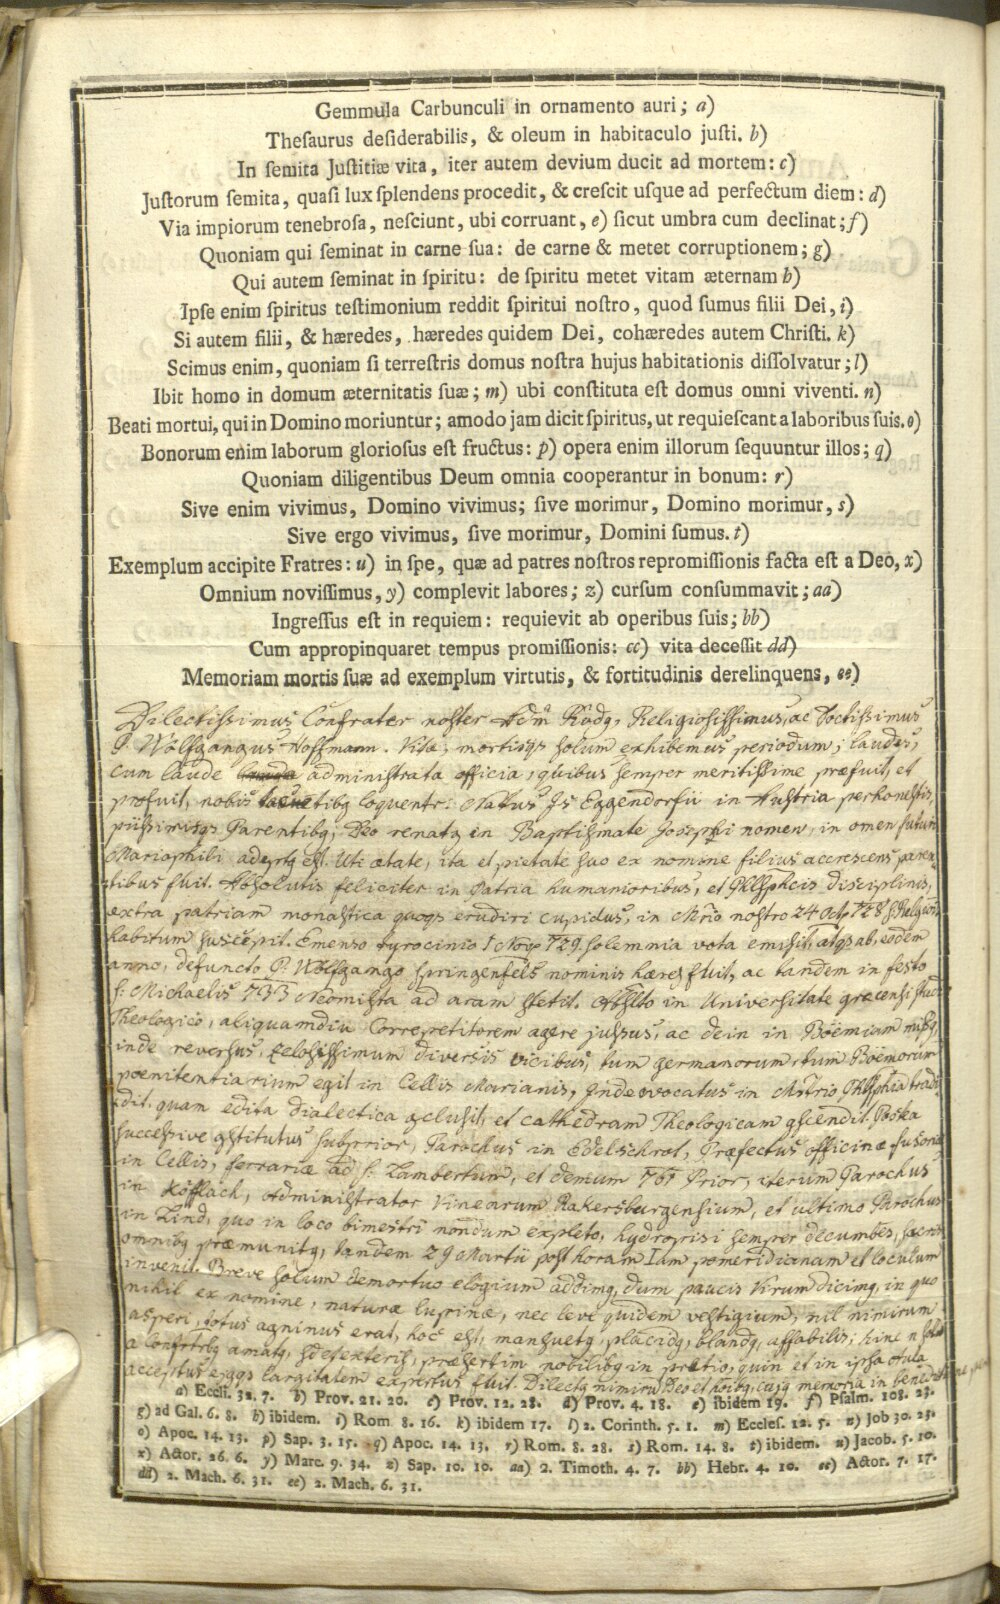 Gemmula Carbunculi in ornamento auri; a)
Theſaurus deſiderabilis, & oleum in habitaculo juſti. b)
In ſemita Juſtitiæ vita, iter autem devium ducit ad mortem: c)
Juſtorum ſemita, quaſi lux ſplendens procedit, & creſcit uſque ad perfectum diem: d)
Via impiorum tenebroſa, neſciunt, ubi corruant, e) ſicut umbra cum declinat; f)
Quoniam qui ſeminat in carne ſua: de carne & metet corruptionem; g)
Qui autem ſeminat in ſpiritu: de ſpiritu metet vitam æternam h)
Ipſe enim ſpiritus teſtimonium reddit ſpiritui noſtro, quod ſumus filii Dei, i)
Si autem filii, & hæredes, hæredes quidem Dei, cohæredes autem Chriſti. k)
Scimus enim, quoniam ſi terreſtris domus noſtra hujus habitationis diſſolvatur; l)
Ibit homo in domum æternitatis ſuæ; m) ubi conſtituta eſt domus omni viventi. n)
Beati mortui, qui in Domino moriuntur; amodo jam dicit ſpiritus, ut requieſcant a laboribus ſuis. o)
Bonorum enim laborum glorioſus eſt fructus: p) opera enim illorum ſequuntur illos; q)
Quoniam diligentibus Deum omnia cooperantur in bonum: r)
Sive enim vivimus, Domino vivimus; ſive morimur, Domino morimur, s)
Sive ergo vivimus, ſive morimur, Domini ſumus. t)
Exemplum accipite Fratres: u) in ſpe, quæ ad patres noſtros repromiſſionis facta eſt a Deo, x)
Omnium noviſſimus, y) complevit labores; z) curſum conſummavit; aa)
Ingreſſus eſt in requiem: requievit ab operibus ſuis; bb)
Cum appropinquaret tempus promiſſionis: cc) vita deceſſit dd)
Memoriam mortis ſuæ ad exemplum virtutis, & fortitudinis derelinquens, ee)
Dilectissimus Confrater noster Adm Rdg, Religiosissimus, ac Doctissimus
P. Wolfgangus Hoffmann. Vitæ, mortisqs solum exhibemus periodum; laudes,
cum laude administrata officia, quibus semper meritissime præfuit, et
profuit, nobis loquentr. Natus Is Eggendorfii in Austria perhonestis,
piissimisqs Parentibg, Deo renatg in Baptismate Josephi nomen, in omen futuri
Mariophili adeptg est. Uti ætate, ita et pietate suo ex nomine filius accrescens paren
tibus fuit. Absolutis feliciter in Patria humanioribus, et Phlsphcis disciplinis,
extra patriam monastica quoqs erudiri cupidus, in Mrio nostro 24 Oct 728
habitum suscepit. Emenso tyrocinio 1 Nov 729 solemnia vota emisit, atqs ab, eodem
anno, defuncto P. Wolfgango Springenfels nominis hæres fuit, ac tandem in festo
s. Michaelis 733 Neomista ad aram stetit. Abslto in Universitate græcensi
Theologico, aliquamdiu Correpetitorem agere jussus, ac dein in Böemiam missg,
inde reversus, zelosissimum diversis vicibus, tum germanorum, tum Böemorum
poenitentiarium egit in Cellis Marianis, Inde vocatus in Mstrio Phlsphia tradi
dit, quam edita dialectica qclusit, et cathedram Theologicam qscendit. Postea
successive qstitutus subprior, Parochus in Edelschrot, Præfectus officinæ fusoriæ
in Cellis, ferrariæ ad s. Lambertum, et demum 761 Prior, iterum Parochus
in Köfflach, Administrator Vinearum Rakersburgensium, et ultimo Parochus
in Lind, quo in loco bimestri nondum expleto, hydropisi semper decumbes, sacris
omnibg præmunitg, tandem 29 Martii post horam Iam pomeridianam et loculum
invenit. Breve solum demortuo elogium addimg, dum paucis Virum dicimg, in quo
nihil ex nomine, naturæ lupinæ, nec leve quidem vestigium, nil nimirum
asperi, totus agninus erat, hoc est, mansuetg, placidg, blandg, affabilis; hinc n
a Confrtrbg amatg, sd et exteris, præsertim nobilibg in pretio, quin et in ipsa
acceptus largitatem expertus fuit. Dilectg nimirum Deo et hoibg, cujg memoria in benedictione
a) Eccli. 32, 7. b) Prov. 21. 20. c) Prov. 12. 28. d) Prov. 4. 18. e) ibidem 19. f) Pſalm. 108. 23.
g) ad Gal. 6. 8. h) ibidem. i) Rom. 8. 16. k) ibidem 17. l) 2. Corinth. 5. 1. m) Eccleſ. 12. 5. n) Job 30. 23.
o) Apoc. 14. 13. p) Sap. 3. 15. q) Apoc. 14. 13. r) Rom. 8. 28. s) Rom. 14. 8. t) ibidem. u) Jacob. 5. 10.
x) Actor. 26. 6. y) Marc. 9. 34. z) Sap. 10. 10. aa) 2. Timoth. 4. 7. bb) Hebr. 4. 10. cc) Actor. 7. 17.
dd) 2. Mach. 6. 31. ee) 2. Mach. 6. 31.